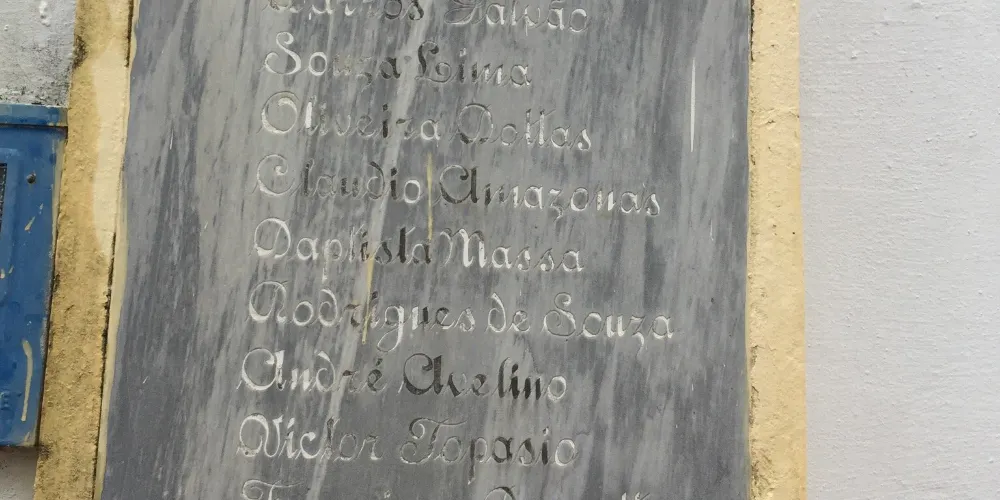 Souza Lima
Oliveira Dottas
Claudio Amazonas
Baptista Massa
Rodrigues de Souza
André Avelino
Victor Topasio